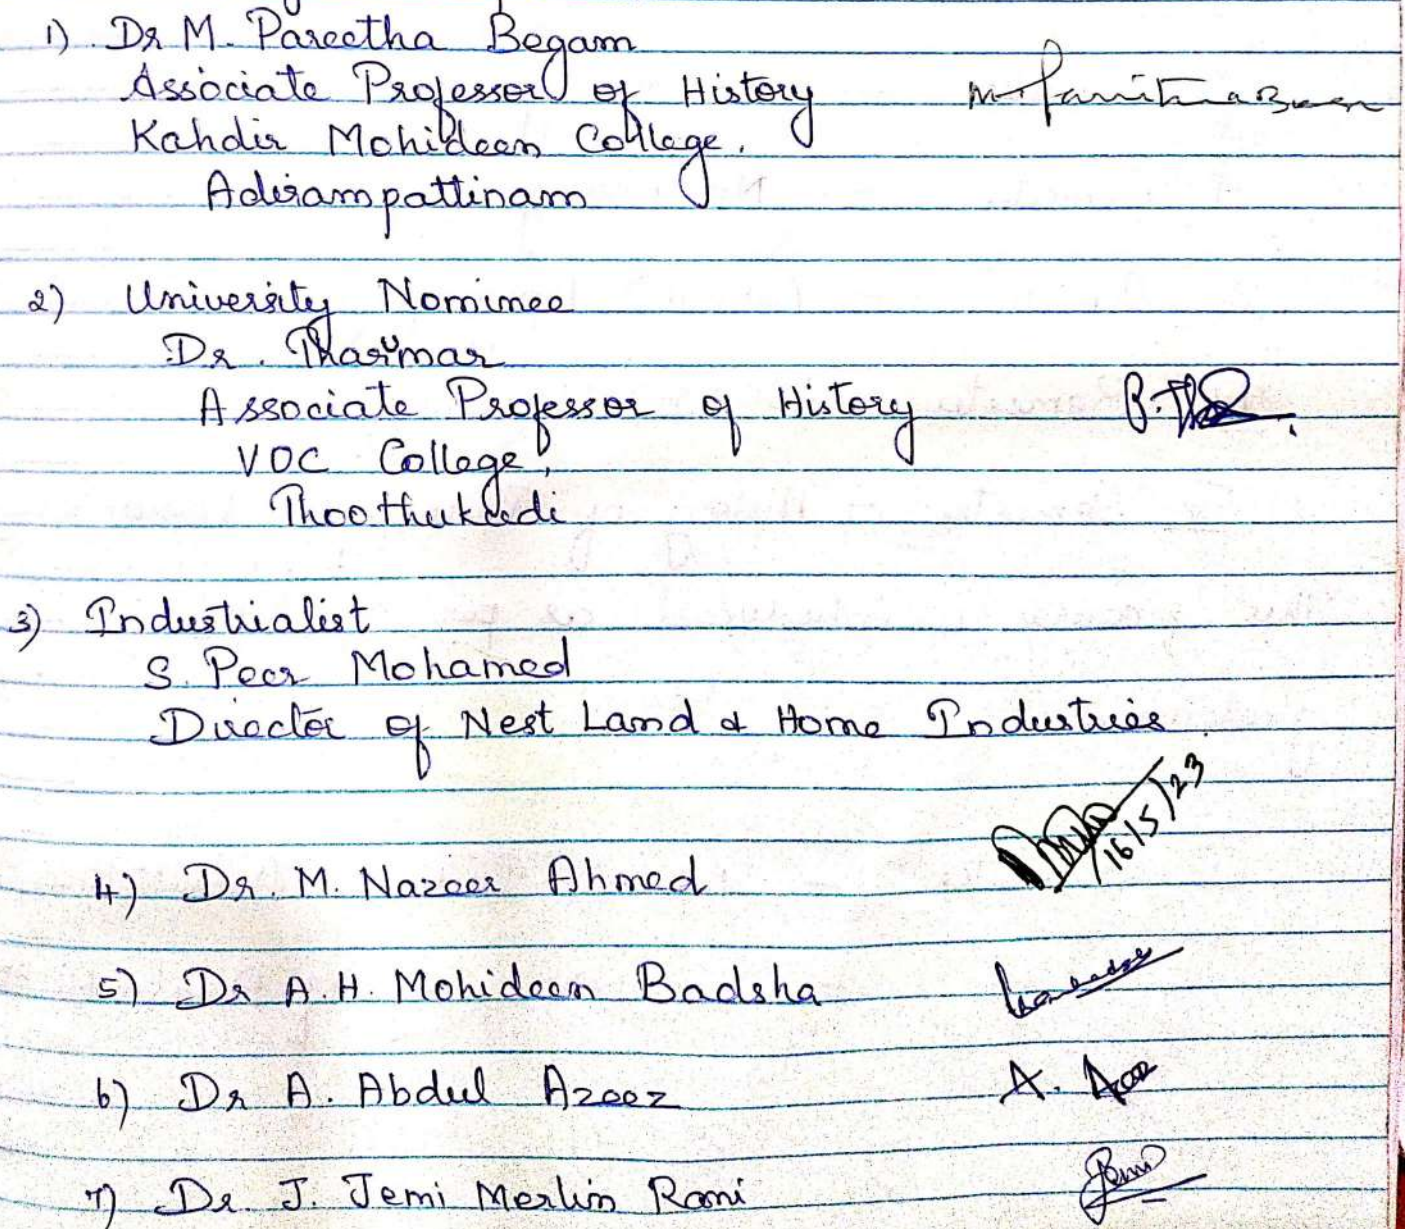 1) Dr M. Pareetha Begam
Associate Professor of History
Kahdir Mohideen College,
Adirampattinam
2) University Nominee
Dr. Tharumar
Associate Professor of History
VOC College,
Thoothukudi
3) Industrialist
S. Peer Mohamed
Director of Nest Land & Home Industries.
16/5/23
4) Dr. M. Nazeer Ahmed
5) Dr A.H. Mohideen Badsha
6) Dr A. Abdul Azeez
A.
7) Dr. J. Jemi Merlin Rani